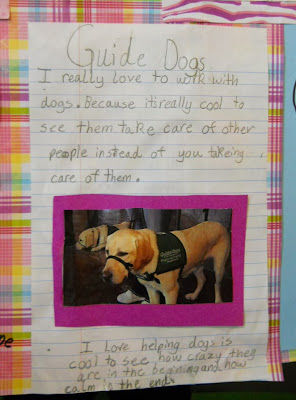 Guide Dogs
I really love to work with
dogs. Because it really cool to
see them take care of other
people instead of you takeing
care of them.
I Love helping dogs is
cool to see how crazy they
are in the begining and how
calm in the end.